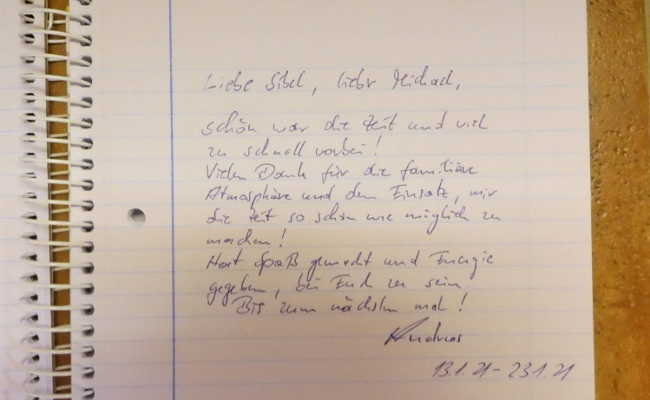 Liebe Sibel, lieber Michael,
schön war die Zeit und viel
zu schnell vorbei!
Vielen Dank für die familiäre
Atmosphäre und den Einsatz, mir
die Zeit so schön wie möglich zu
machen!
Hat Spaß gemacht und Energie
gegeben, bei Euch zu sein.
Bis zum nächsten mal!
Andreas
13.1.21 - 23.1.21